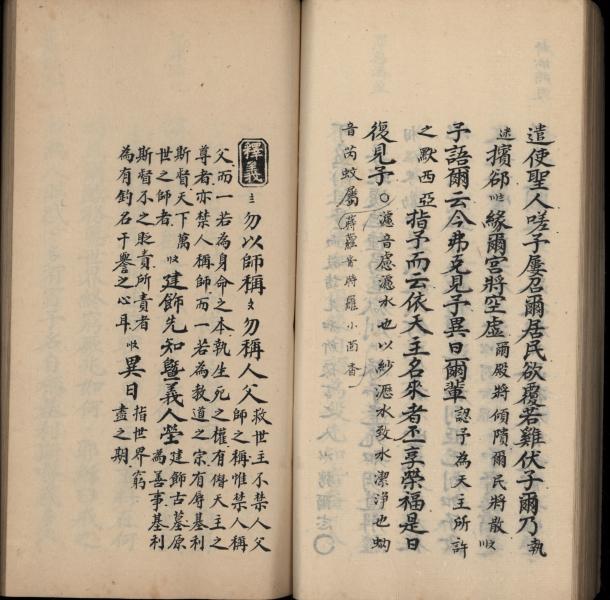 遣使聖人嗟予屢召爾居民欲覆若雞伏子爾乃執
迷擯郤㳄緣爾宮將空虛爾殿將傾隤爾民將散㳄
予語爾云今弗克見予異日爾輩認予為天主所許
之默西亞指予而云依天主名來者丕享榮福是日
復見予○濾音慮濾水也以紗瀝水致水潔淨也蚋
音芮蚊屬蒔蘿音時羅小茴香
釋義
三勿以師稱勿稱人父救世主不禁人父
師之稱惟禁人稱
父而一若為身命之本執生死之權有僣天主之
尊者亦禁人稱師而一若為教道之宗有辱基利
斯督天下萬
世之師者建飾先知曁義人塋建飾古墓原
為善事基利
斯督不之貶責所責者
為有釣名干譽之心耳異日指世界窮
盡之期